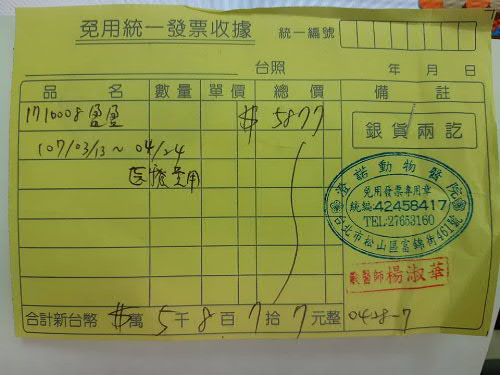 免用統一發票收據
統一編號
台照 年 月 日
品名 數量 單價 總價 備註
1710008 盈盈 $ 5877
107/03/13~04/24
医療費用
銀貨兩訖
澄諾動物醫院
免用發票專用章
統編:42458417
TEL:27653160
台北市松山區富錦街461號
獸醫師 楊淑華
合計新台幣 $萬 5千 8百 7拾 7元整
0428-7